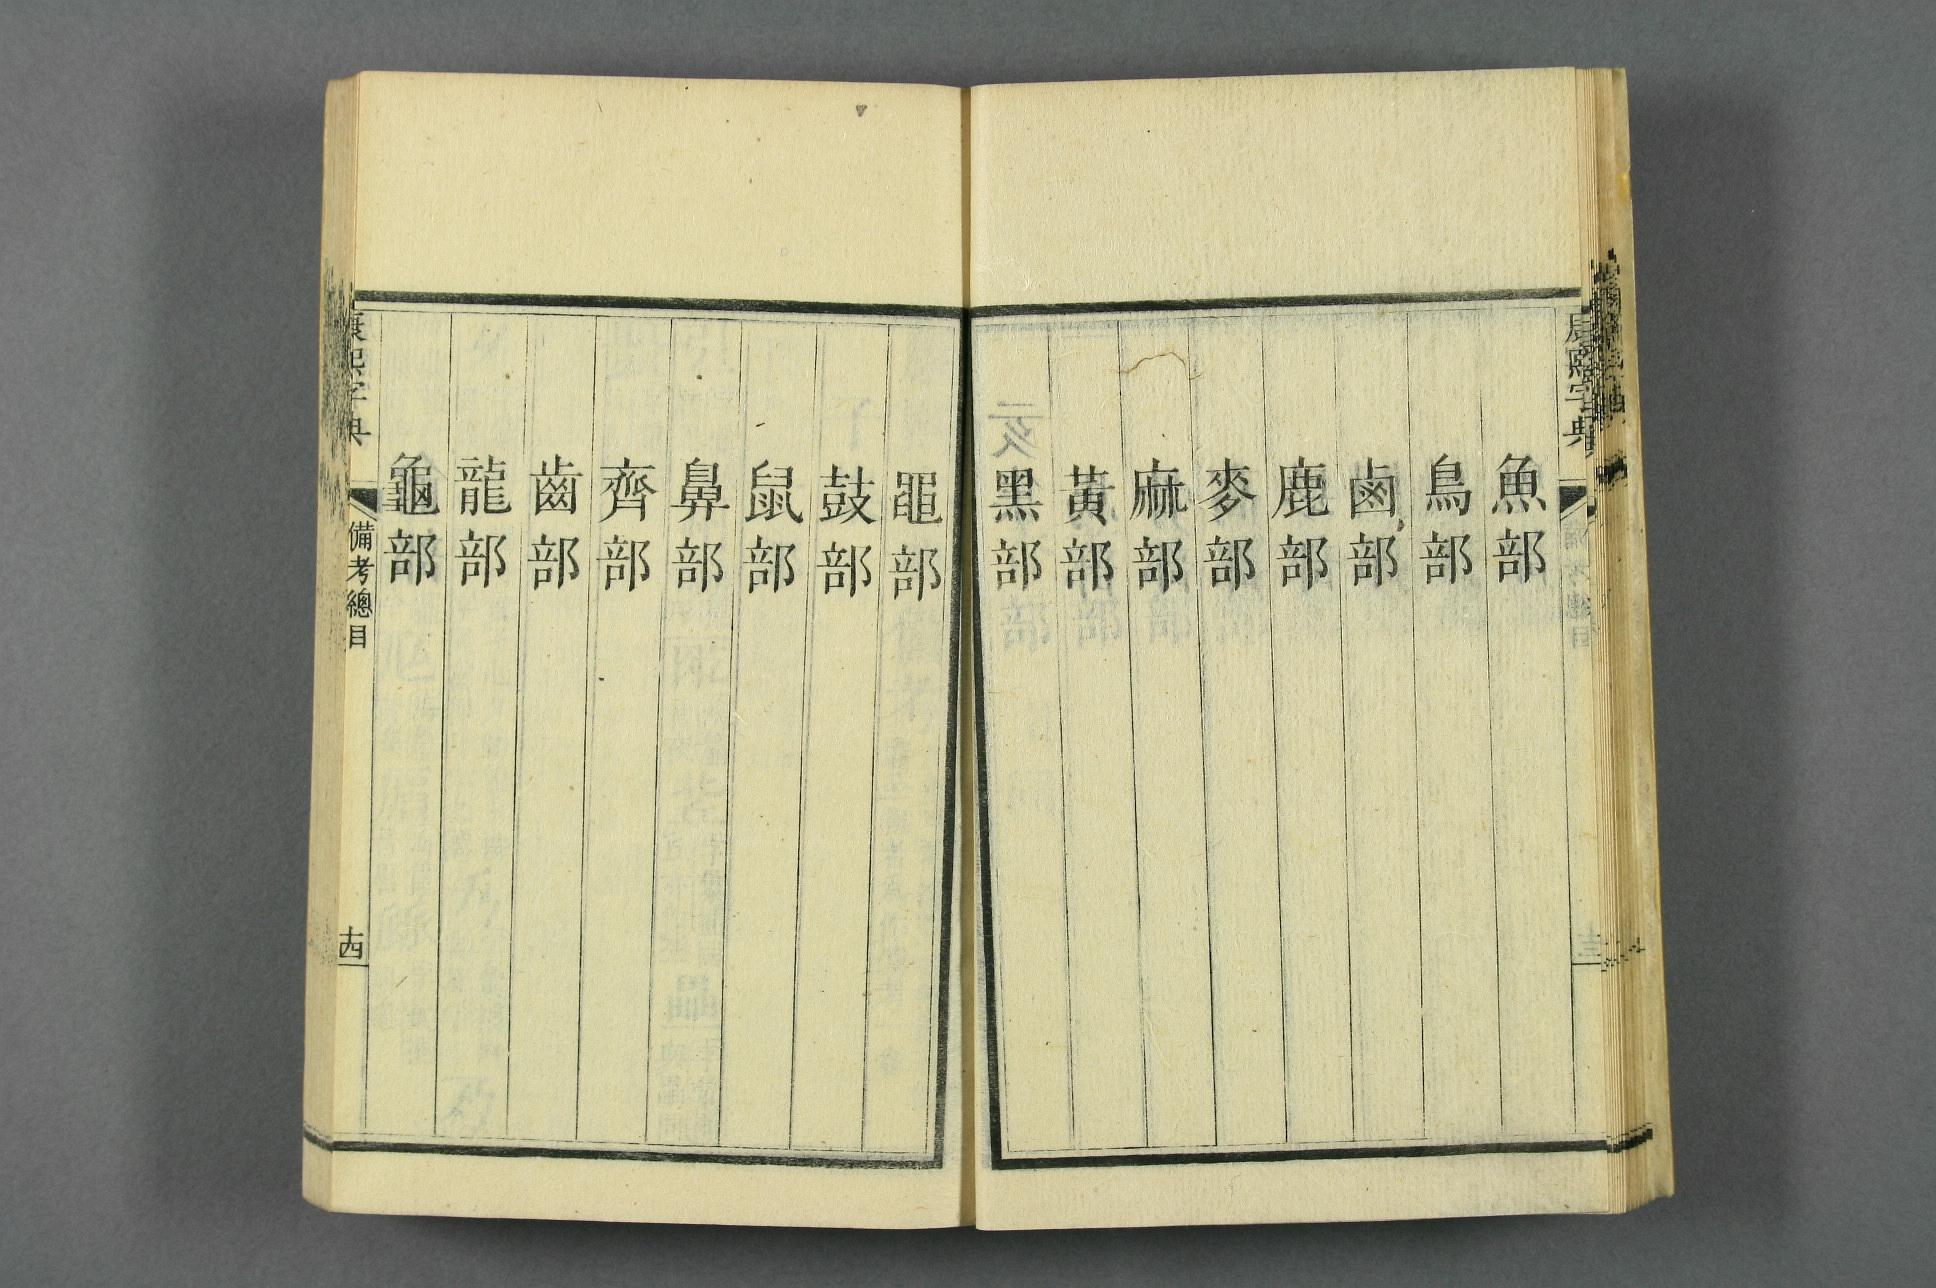 康熙字典
魚部
鳥部
鹵部
鹿部
麥部
麻部
黃部
黑部
黽部
鼓部
鼠部
鼻部
齊部
齒部
龍部
龜部
康熙字典
備考總目
十四